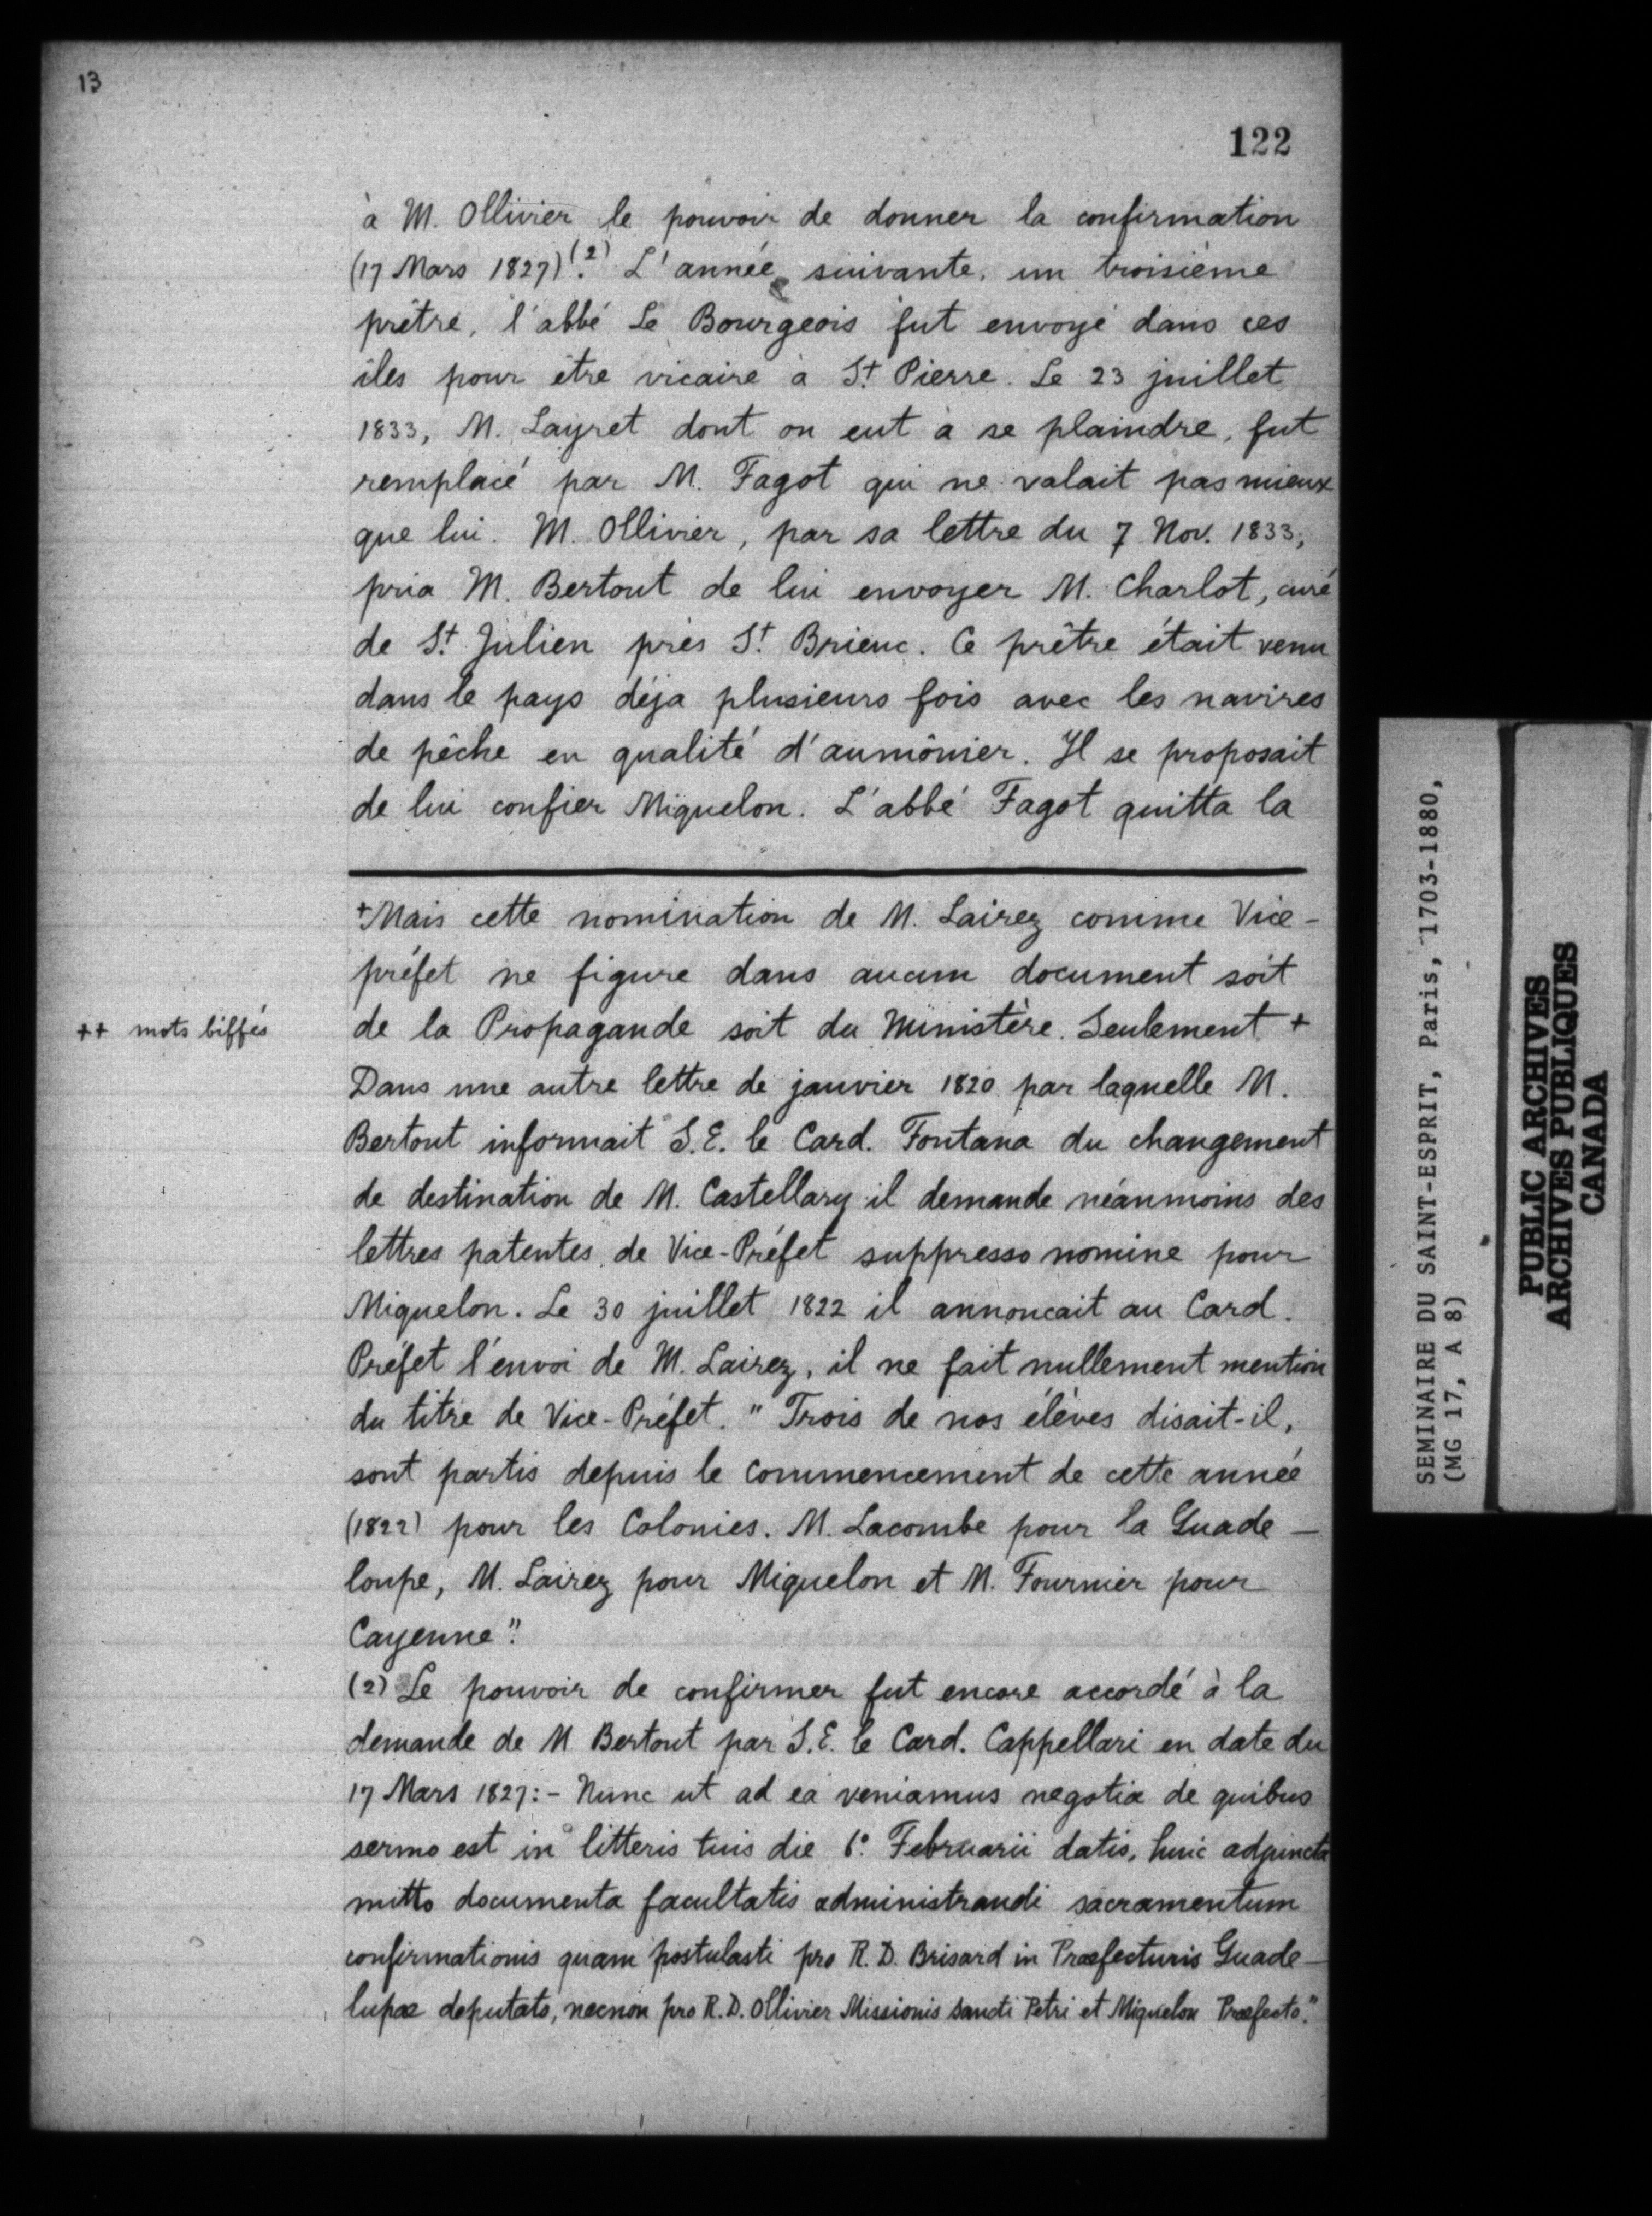 13
122
à M. Ollivier le pouvoir de donner la confirmation
(17 Mars 1827)(2). L'année suivante, un troisième
prêtre, l'abbé Le Bourgeois fut envoyé dans ces
îles pour être vicaire à St. Pierre. Le 23 juillet
1833, M. Layret dont on eut à se plaindre, fut
remplacé par M. Fagot qui ne valait pas mieux
que lui. M. Ollivier, par sa lettre du 7 Nov. 1833,
pria M. Bertout de lui envoyer M. Charlot, curé
de St. Julien près St. Brieuc. Ce prêtre était venu
dans le pays déja plusieurs fois avec les navires
de pêche en qualité d'aumônier. Il se proposait
de lui confier Miquelon. L'abbé Fagot quitta la
+Mais cette nomination de M. Lairez comme Vice-
préfet ne figure dans aucun document soit
++ mots biffés
de la Propagande soit du Ministère. Seulement +
Dans une autre lettre de janvier 1820 par laquelle M.
Bertout informait S.E. le Card. Fontana du changement
de destination de M. Castellary il demande néanmoins des
lettres patentes de Vice-Préfet suppresso nomine pour
Miquelon. Le 30 juillet 1822 il annoncait au Card.
Préfet l'envoi de M. Lairez, il ne fait nullement mention
du titre de Vice-Préfet. "Trois de nos élèves disait-il,
sont partis depuis le commencement de cette année
(1822) pour les Colonies. M. Lacombe pour la Guade-
loupe, M. Lairez pour Miquelon et M. Fournier pour
Cayenne".
(2) Le pouvoir de confirmer fut encore accordé à la
demande de M Bertout par S.E. le Card. Cappellari en date du
17 Mars 1827:- Nunc ut ad ea veniamus negotia de quibus
sermo est in litteris tuis die 6° Februarii datis, huic adjuncta
mitto documenta facultatis administrandi sacramentum
confirmationis quam postulasti pro R. D. Brisard in Præfecturis Guade-
lupæ deputato, necnon pro R. D. Ollivier Missionis Sancti Petri et Miquelon Præfecto."
SEMINAIRE DU SAINT-ESPRIT, Paris, 1703-1880,
(MG 17, A 8)
PUBLIC ARCHIVES
ARCHIVES PUBLIQUES
CANADA